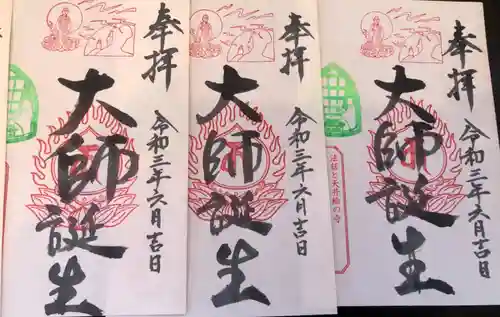 奉拝
大師誕生
令和三年六月吉日
奉拝
大師誕生
令和三年六月吉日
奉拝
大師誕生
令和三年六月吉日